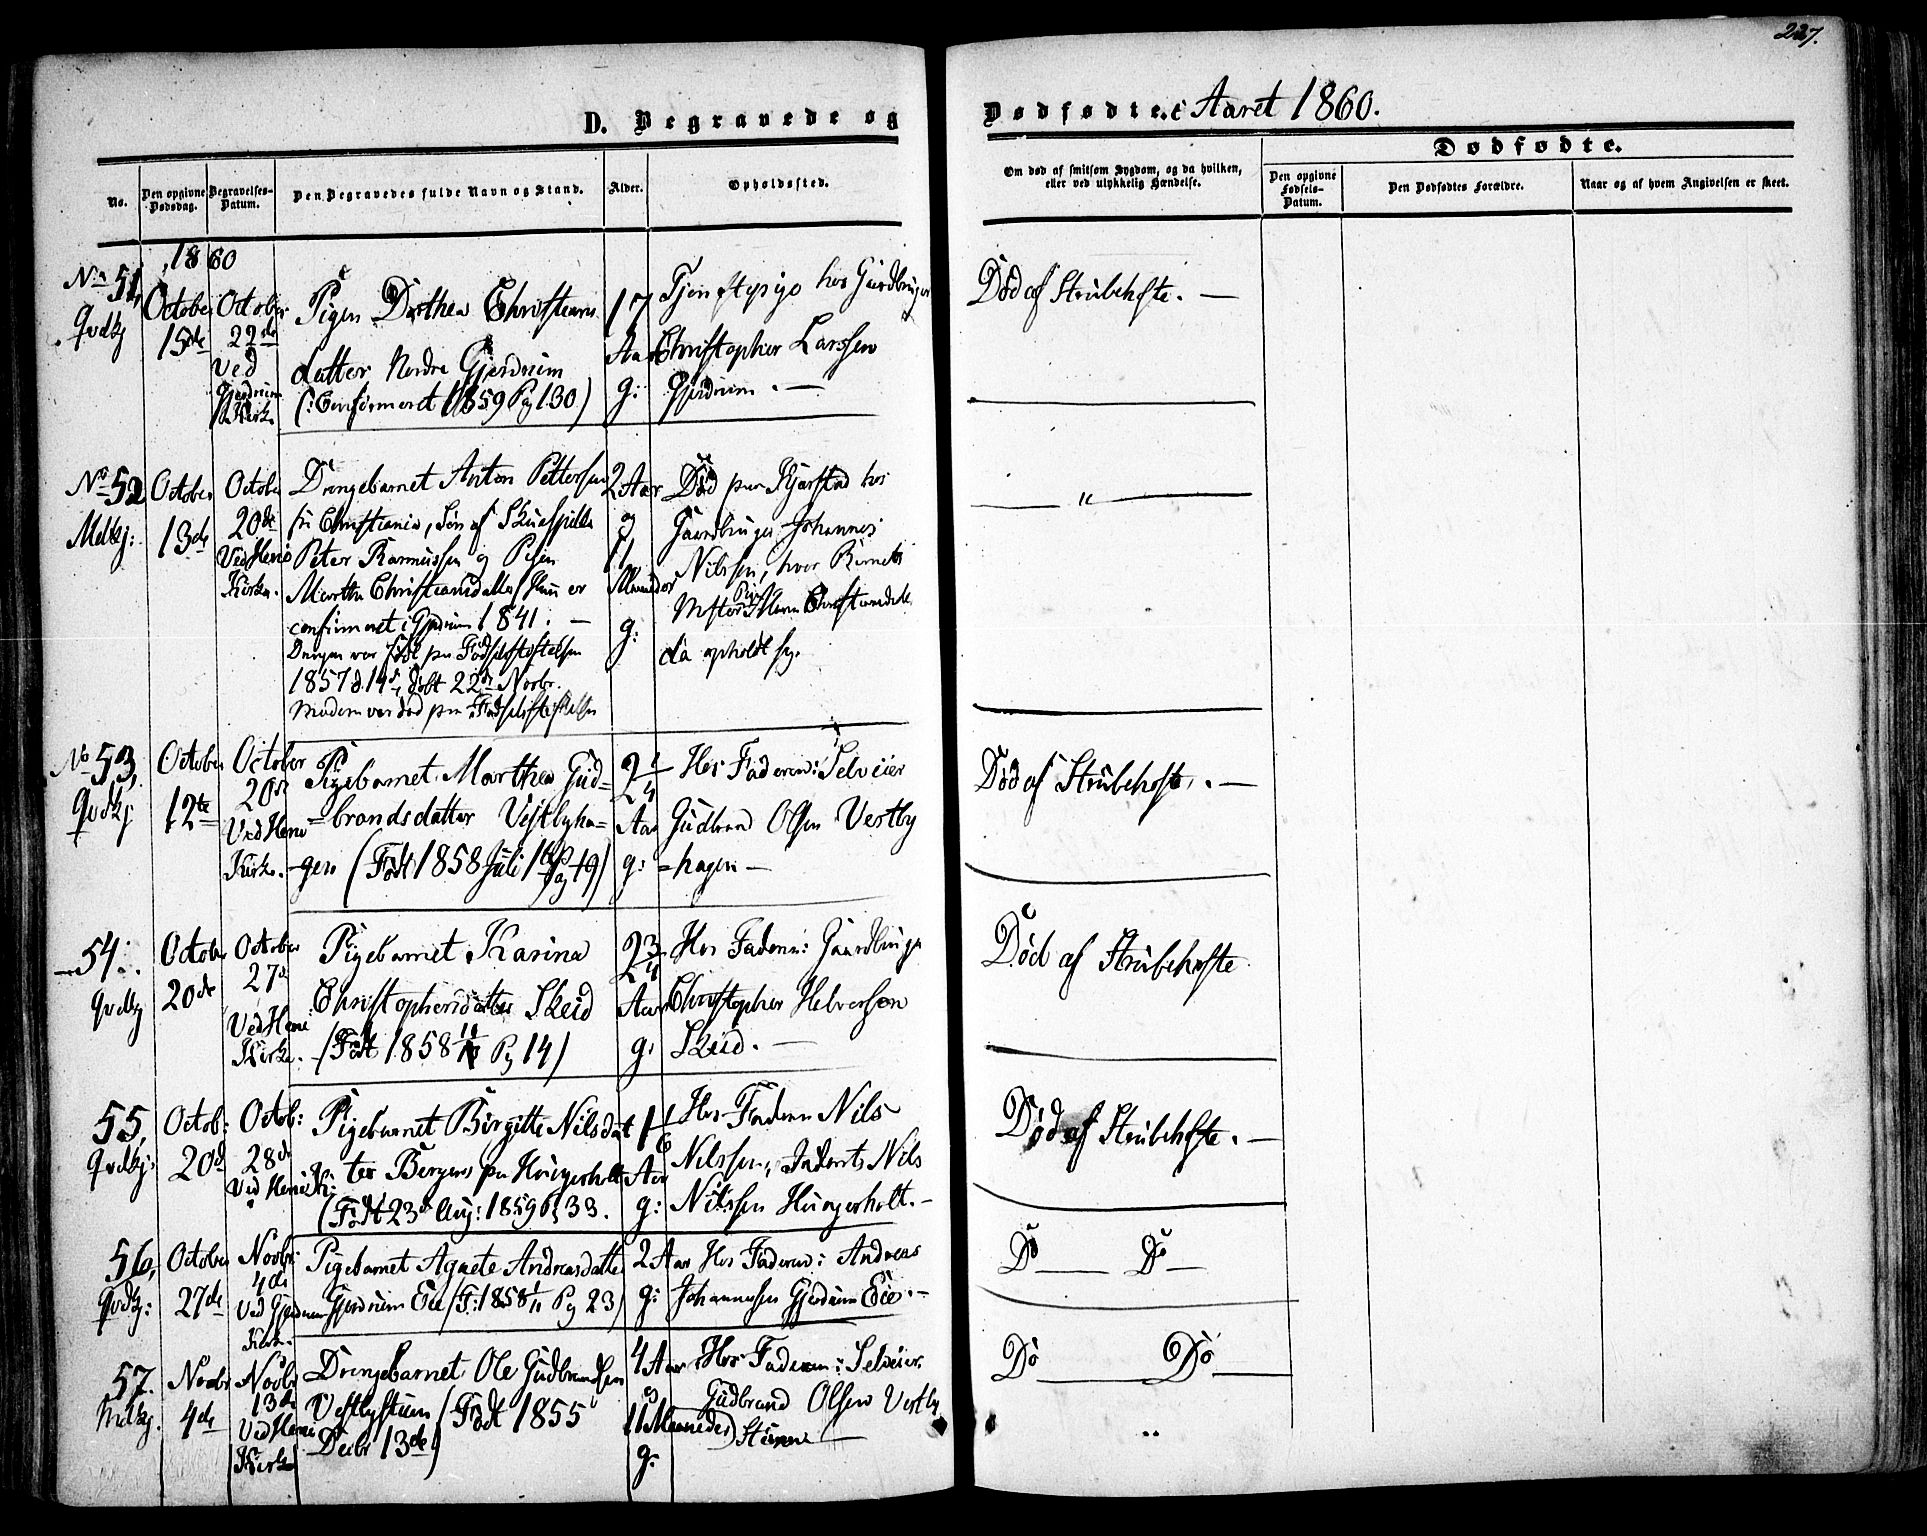 227.
D. Begravede og
Dødfødte. i Aaret 1860.
No.
Den opgivne Dødsdag.
Begravelses-Datum.
Den Begravedes fulde Navn og Stand.
Alder.
Opholdssted.
Om død af smitsom Sygdom, og da hvilken,
eller ved ulykkelig Hændelse.
Dødfødte.
Den opgivne Fødsels-Datum.
Den Dødfødtes Forældre.
Naar og af hvem Angivelsen er skeet.
1860
No 51,
Qvdkj
October
15de
October
22de
Ved
Gjerdrum
Kirke.
Pigen Dorthea Christians
datter Nordre Gjerdrum
(: Confirmeret 1859 Pag 130)
17
Aar
g:
Tjenestepige hos Gaardbruger
Christopher Larssen
Gjerdrum. —
Død af Strubehoste. —
No 52
Mdkj:
October
13de
October
20de
Ved Heni
Kirke.
Drengebarnet Anton Pettersen
fra Christiania, Søn af Skuespiller
Peter Rasmussen og Pigen
Marthe Christiansdatter / Hun er
confirmeret i Gjerdrum 1841. —
Drengen var født paa Fødselsstiftelsen
1857 d. 14de, døbt 22de Novbr.
Moderen var død paa Fødselsstiftelsen
2 Aar
og
11
Maaneder
g:
Død paa Kjærstad hos
Gaardbruger Johannes
Nilssen, hvor Barnets
Moster Pigen Maren Christiansdatter
da opholdt sig.
— " —
No 53,
Qvdkj
October
12te
October
20de
Ved Heni
Kirke.
Pigebarnet Marthea Gud-
=brandsdatter Vestbyha=
-gen (Født 1858 Juli 1ste Pag 19)
2 1/4
Aar
g:
Hos Faderen: Selveier
Gudbrand Olsen Vestby
=hagen —
Død af Strubehoste. —
54.
Qvdkj
October
20de
October
27de
Ved Heni
Kirke.
Pigebarnet Karina
Christophersdatter Skeid
(Født 1858 Pag 14)
2 3/4
Aar
g:
Hos Faderen: Gaardbruger
Christopher Helversen
Skeid. —
Død af Strubehoste
55,
Qvdkj:
Octob:
20de
Octob:
28de
Ved Heni K:
Pigebarnet Birgitte Nilsdat
ter Bergens paa Hungerholt
(Født 23de Aug: 1859 Pag 33.
1 1/6
Aar
g:
Hos Faderen Nils
Nilssen, Inderst Nils
Nilssen Hungerholt. —
Død af Strubehoste. —
56,
Qvdkj:
October
27de
Novbr:
4de
Ved Gjerdrum
Kirke.
Pigebarnet Agnete Andreasdatter
Gjerdrum Eie (F: 1858 1/11 Pag 23)
2 Aar
g:
Hos Faderen: Andreas
Johannesen Gjerdrum Eie. —
Do — Do —
57.
Mdkj.
Novbr
4de
Novbr
13de
Ved Heni
Kirke
Drengebarnet Ole Gudbrandsen
Vestbystuen (Født 1855
Decbr 13de)
4 Aar
og
11 Maaneder
g:
Hos Faderen: Selveier
Gudbrand Olsen Vestby
Stuen —
Do — Do —